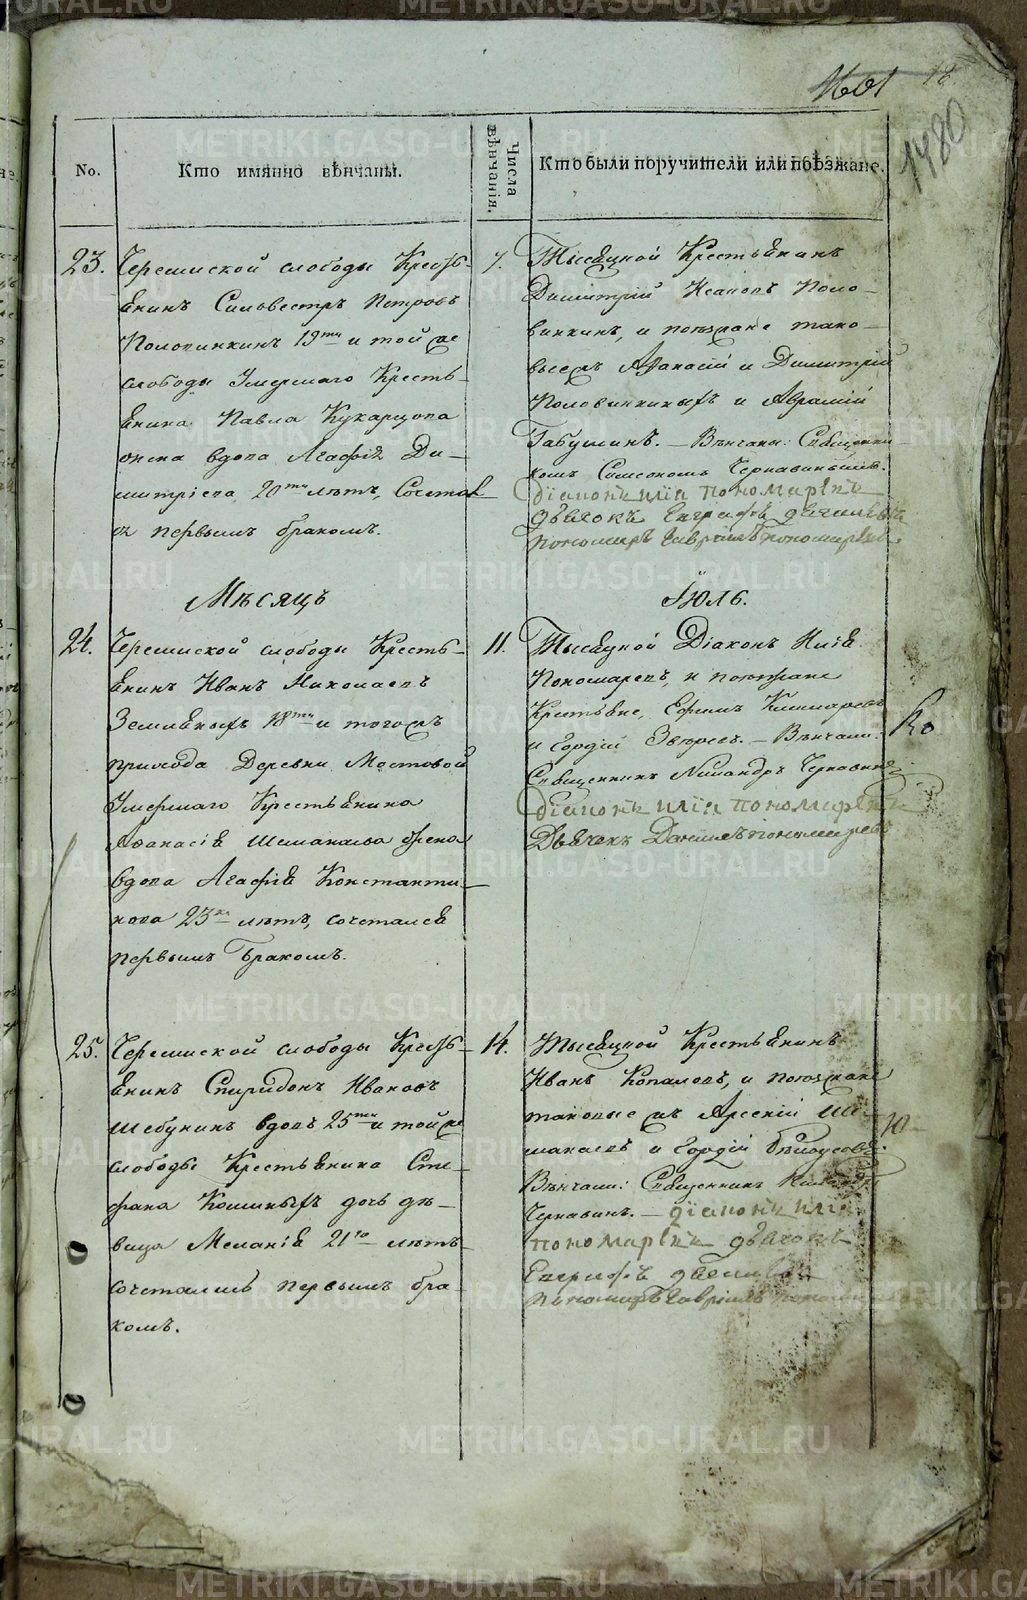 1601 12
1480
No.
Кто имянно вѣнчаны.
Числа вѣнчанія.
Кто были поручители или поѣзжане.
23.
Черемиской слободы Кресть-
янинъ Силвестръ Петровъ
Половинкинъ 19ти и той же
слободы Умершаго Кресть-
янина Павла Кухарцова
жена вдова Агафія Ди-
митріева 20ти лѣтъ, Сочетал
ся первымъ бракомъ.
7.
Тысяцкой Крестьянинъ
Димитрій Исаковъ Поло-
винкинъ, и поѣзжане тако-
выежъ Афанасій и Димитрій
Половинкиныхъ и Аврамій
Табушинъ. – Вѣнчаны: Священни-
комъ Симеономъ Чернавинымъ.
діаконъ илія пономаревъ
дьячокъ Евграфъ
пономарь Гавріилъ пономаревъ
Мѣсяцъ
Іюль.
24.
Черемиской слободы Кресть-
янинъ Иванъ Николаевъ
Земляныхъ 18ти и тогожъ
прихода Деревни Мостовой
Умершаго Крестьянина
Афанасія Шманаева жена
вдова Агафія Константи-
нова 23хъ лѣтъ, сочетался
первымъ бракомъ.
11.
Тысяцкой Діаконъ Илія
Пономаревъ, и поѣзжане
Крестьяне, Ефимъ
и Гордій Звѣревъ. – Вѣнчали:
Священникъ Никандръ Чернавинъ
діаконъ илія пономаревъ
Дьячекъ Даніилъ пономаревъ
25.
Черемиской слободы Кресть-
янинъ Спиридонъ Ивановъ
Шебунинъ вдовъ 25ти и той же
слободы Крестьянина Сте-
фана Кошиныхъ дочь дѣ-
вица Меланія 21го лѣтъ
сочетались первымъ бра-
комъ.
14.
Тысяцкой Крестьянинъ
Иванъ Копаловъ, и поѣзжане
таковые жъ Арсеній Ш-
манаевъ и Гордій Бѣлоусовъ.
Вѣнчали: Священникъ
Чернавинъ. – діаконъ илія
пономаревъ дьячокъ
Евграфъ
пономарь Гавріилъ
METRIKI.GASO-URAL.RU